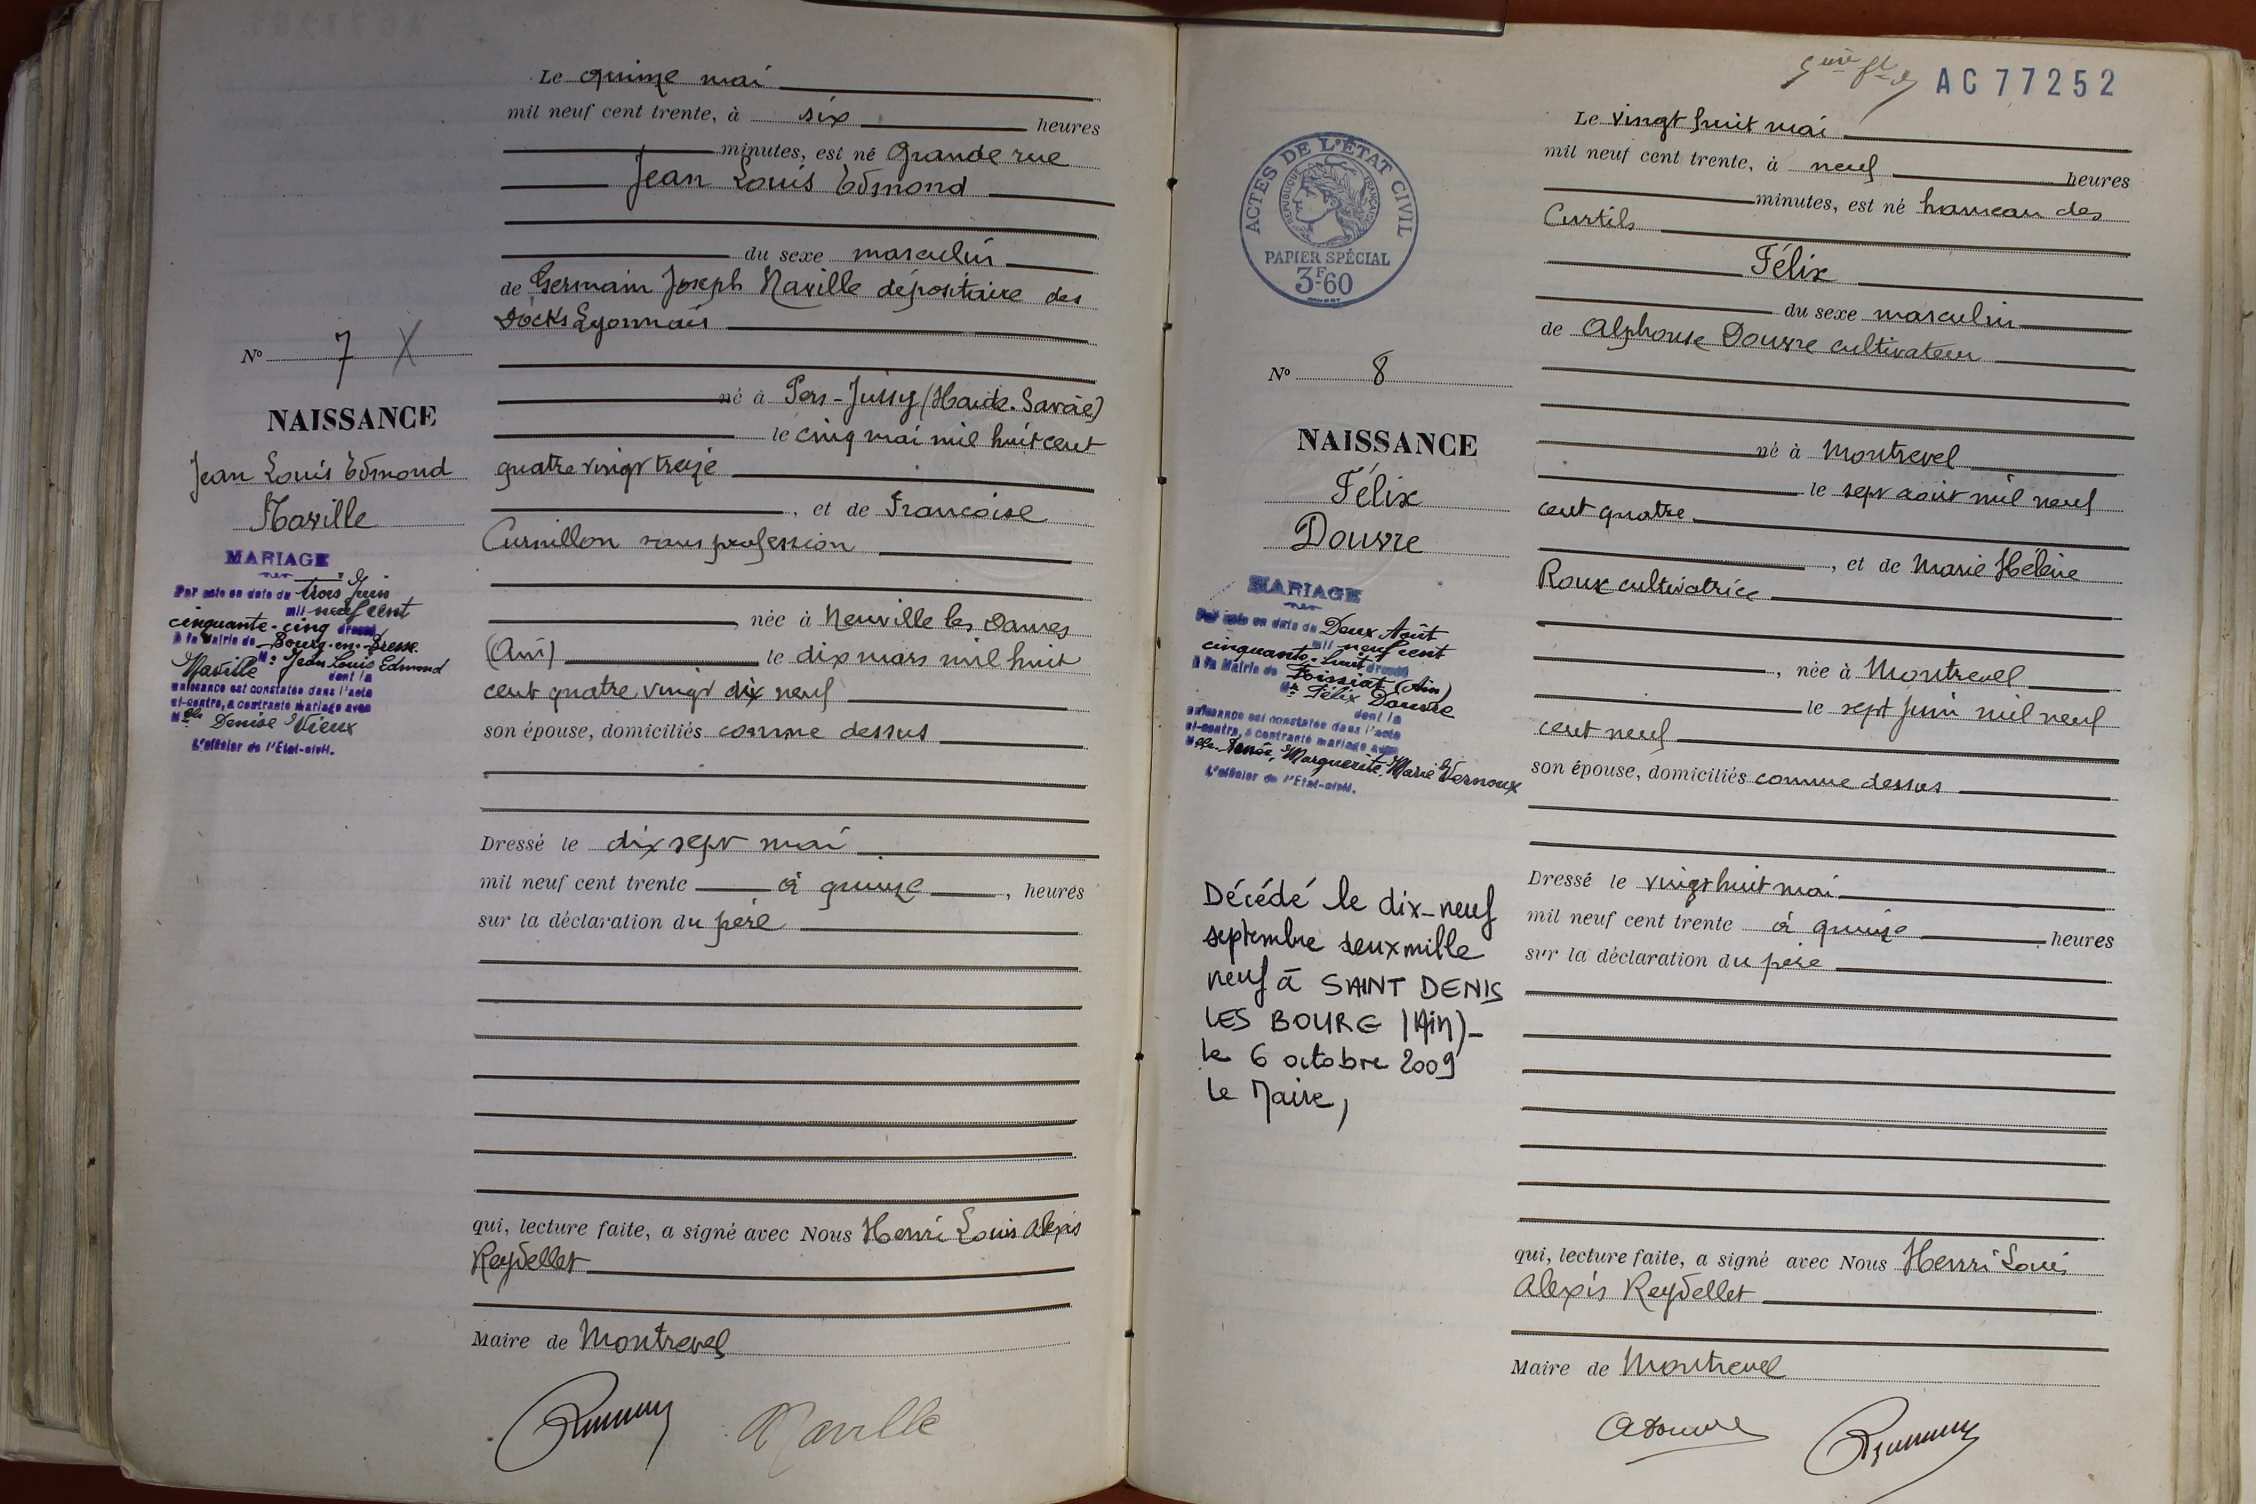 Le quinze mai
mil neuf cent trente, à six heures
minutes, est né Grande rue
Jean Louis Edmond
du sexe masculin
de Germain Joseph Naville dépositaire des
Docks Lyonnais
né à Pers-Jussy (Haute-Savoie)
le cinq mai mil huit cent
quatre vingt treize
, et de Francoise
Curnillon sans profession
née à Neuville les Dames
(Ain) le dix mars mil huit
cent quatre vingt dix neuf
son épouse, domiciliés comme dessus
Dressé le dix sept mai
mil neuf cent trente à quinze, heures
sur la déclaration du père
qui, lecture faite, a signé avec Nous Henri Louis Alexis
Reydellet
Maire de Montrevel
Naville
No 7 X
NAISSANCE
Jean Louis Edmond
Naville
MARIAGE
Par acte en date du trois Juin
mil neuf cent
cinquante-cinq dressé
à la Mairie de Bourg-en-Bresse
Mr Jean Louis Edmond
Naville dont la
naissance est constatée dans l'acte
ci-contre, a contracté mariage avec
Melle Denise Vieux
L'officier de l'Etat-civil.
AC77252
ACTES DE L'ÉTAT CIVIL
RÉPUBLIQUE FRANÇAISE
PAPIER SPÉCIAL
3F60
Le vingt huit mai
mil neuf cent trente, à neuf heures
minutes, est né hameau des
Curtils
Félix
du sexe masculin
de Alphonse Douvre cultivateur
né à Montrevel
le sept août mil neuf
cent quatre
, et de Marie Hélène
Roux cultivatrice
, née à Montrevel
le sept juin mil neuf
cent neuf
son épouse, domiciliés comme dessus
Dressé le vingt huit mai
mil neuf cent trente à quinze heures
sur la déclaration du père
qui, lecture faite, a signé avec Nous Henri Louis
Alexis Reydellet
Maire de Montrevel
ADouvre
No 8
NAISSANCE
Félix
Douvre
MARIAGE
Par acte en date du Deux Août
mil neuf cent
cinquante-huit dressé
à la Mairie de Foissiat (Ain)
Mr Félix Douvre
dont la
naissance est constatée dans l'acte
ci-contre, a contracté mariage avec
Melle Denise, Marguerite, Marie Vernoux
L'officier de l'Etat-civil.
Décédé le dix-neuf
septembre deux mille
neuf à SAINT DENIS
LES BOURG (Ain)_
le 6 octobre 2009
Le Maire,